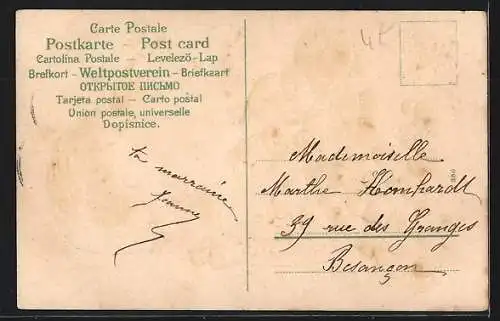 Carte Postale
Postkarte - Post card
Cartolina Postale - Levelező-Lap
Brefkort - Weltpostverein - Briefkaart
ОТКРЫТОЕ ПИСЬМО
Tarjeta postal - Carto postal
Union postale universelle
Dopisnice.
ta marraine
Jeanne
Mademoiselle
Marthe Hornhardt
39 rue des Granges
Besançon